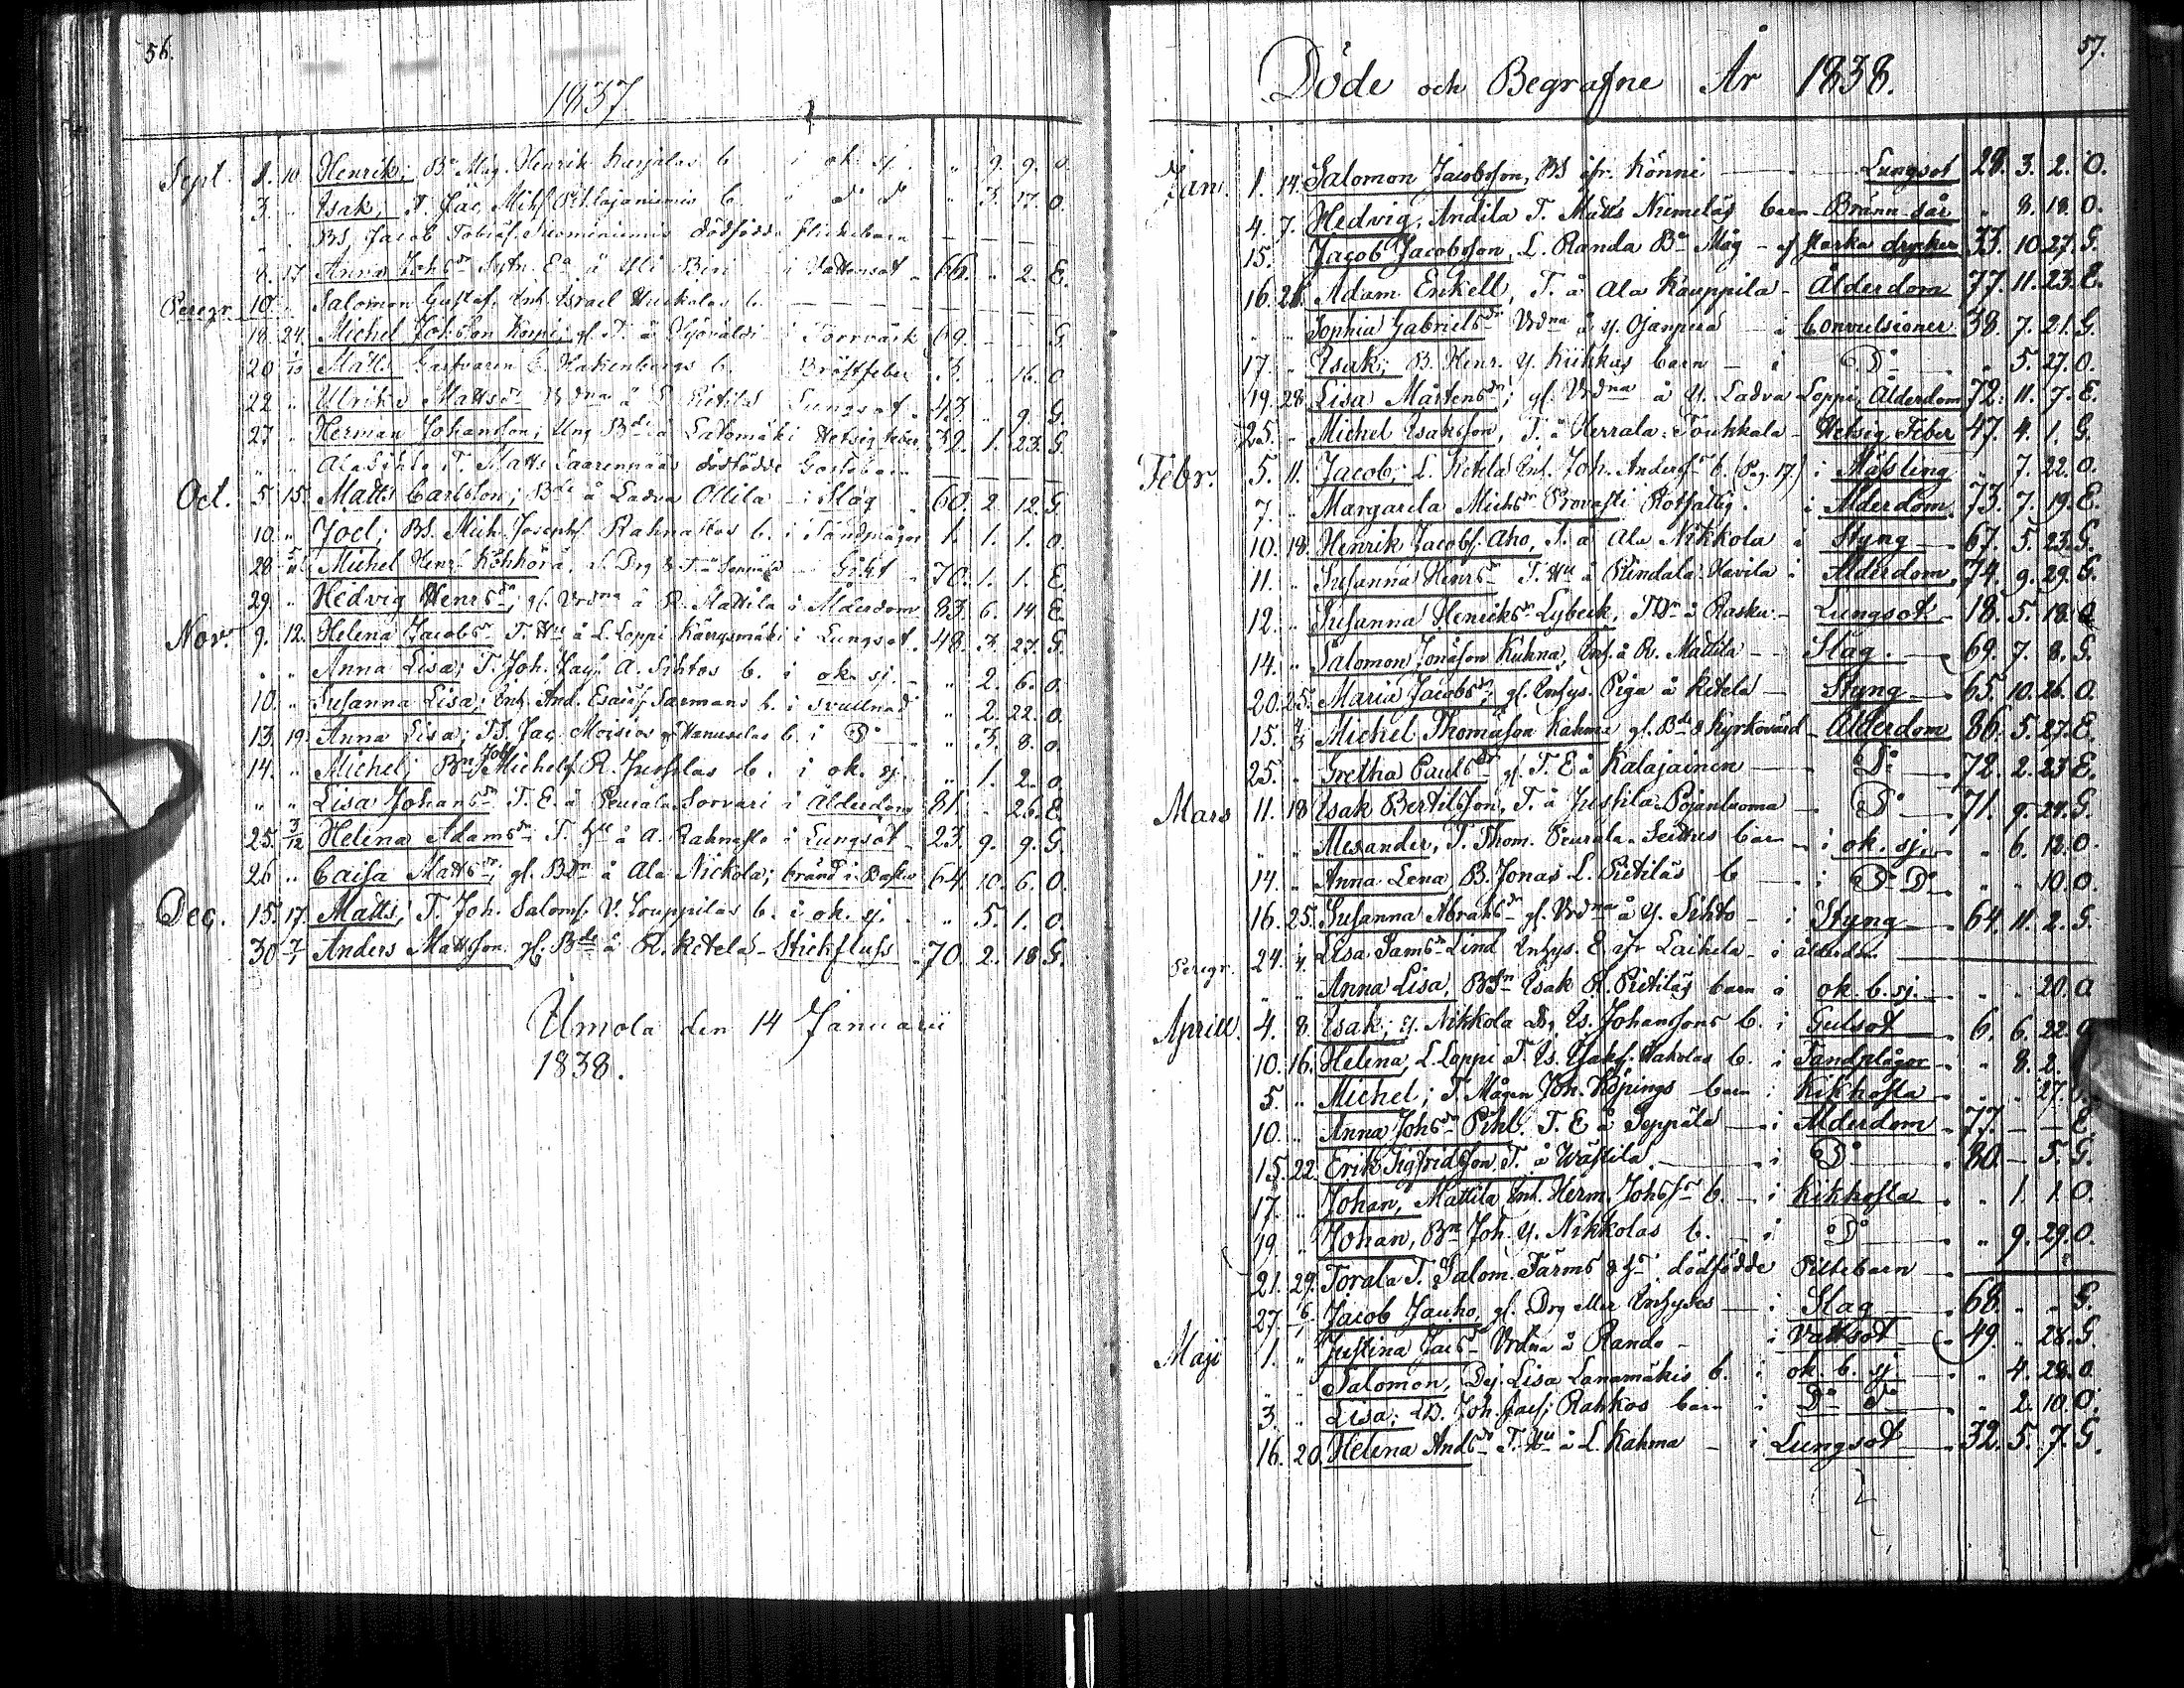 56.
1837
Sept. 8. 10. Henrik; Bd Måg. Henrik Karjalas b. i ok. sj. " 9. 9. O.
3. " Isak, T. Jac. Mich. b. " do do " 3. 17. O.
" BS. Jacob Tobiæs. dödfödde flickebarn — — —
8. 17. Anna Johsdr Sytn. Ea å Yli Biri i Vattusot 66. " 2. E.
Peregr. 10. Salomon Gustaf, Inh. Israel b. — — —
18. 24. Michel Johsson Korpi; gl. T. å i Torrvärk 69. — — G.
20. 1/10 Matts b. Bröstfeber 3. " 16. O.
22. " Ulrika Mattsdr Vrdna å L. Pietilä Lungsot 43. " 9. G.
27. " Herman Johansson; Ung Bde å Latomäki Hetsig feber 32. 1. 23. G.
" " T. Matts Saarenmaas dödfödde Gossebarn — — —
Oct. 5. 15. Matts Carlsson; Bde å Ladva Ollila i Slag 60. 2. 12. G.
10. " Joel; BS. Mich. Josephs. Rahnastos b. i Tandplågor 1. 1. 1. O.
28. 5/11 Michel Henr. Köhkörä, L. Drg & T. å Gikt 70. 1. 1. E.
29. " Hedvig Henrsdr; gl. Vrdna å R. Mattila i Ålderdom 83. 6. 14. E.
Nov. 9. 12. Helena Jacobsdr T. Hu å L. Loppi Kärrysmäki i Lungsot 48. 3. 27. G.
" " Anna Lisa; T. Joh. Jacs. A. Sihtos b. i ok. sj. " 2. 6. O.
10. " Susanna Lisa; Inh. And. Esaiæs. Sarmans b. i svullnad " 2. 22. O.
13. 19. Anna Lisa; TS. Jac. Moisios Hanuselas b. i Do " 3. 8. O.
14. " Michel; Bn Joh. Michels. R. Jussilas b. i ok. sj. " 1. 2. O.
" " Lisa Johansdr T. E. å Peurala Sorvari i Ålderdom 81. — 26. E.
25. 3/12 Helena Adamsdr T. Hu å A. Rahnasto i Lungsot 23. 9. 9. G.
26. " Caisa Mattsdr; gl. BDr å Ala Nickola; bränd i Bastu 64. 10. 6. O.
Dec. 15. 17. Matts; T. Joh. Saloms. V. Louppilas b. i ok. sj. " 5. 1. O.
30. 7/1 Anders Mattsson gl. Bde å R. Ketela Stickfluss 70. 2. 18. G.
Ilmola den 14 Januarii
1838.
57.
Döde och Begrafne År 1838.
Jan. 1. 14. Salomon Jacobsson, BS ifr. Könni — Lungsot 28. 3. 2. O.
4. 7. Hedvig, Andila T. Matts Niemeläs barn Bränn sår " 8. 18. O.
15. Jacob Jacobsson, L. Randa Bde Måg — af starka drycker 33. 10. 27. G.
16. 21. Adam Enkell, T. å Ala Kauppila — Ålderdom 77. 11. 23. E.
" " Sophia Gabrielsdr Vrdna å Y. Ojanperä i Convulsioner 38. 7. 21. G.
17. " Isak; B. Henr. Y. Kiikkas barn — i Do " 5. 27. O.
19. 28. Lisa Mårtensdr; gl. Vrdna å Y. Ladva Loppi, Ålderdom 72. 11. 7. E.
25. " Michel Isaksson, T. å Herrala Toukkala — Hetsig Feber 47. 4. 1. G.
Febr. 5. 11. Jacob; L. Ketela Inh. Joh. Anderss. b. (Pag. 17) i Mässling " 7. 22. O.
7. " Margareta Michsdr Provasti Rotfattig. i Ålderdom 73. 7. 19. E.
10. 18. Henrik Jacobs. Aho, T. å Ala Nikkola i Styng 67. 5. 23. G.
11. " Susanna Henrsdr T. Hu å Rindala Havila i Ålderdom 74. 9. 29. G.
12. " Susanna Henriksdr Lybeck, TDr å Rasku — Lungsot 18. 5. 18. O.
14. " Salomon Jonasson Kuhna, Inh. å R. Mattila — Slag 69. 7. 8. G.
20. 25. Maria Jacobsdr; gl. Inhys. Piga å Ketela — Styng 65. 10. 26. O.
15. 4/3 Michel Thomasson Kahma gl. Bde & Kyrkovärd — Ålderdom 86. 5. 27. E.
25. " Gretha Paulsdr gl. T. E. å Kalajainen — Do 72. 2. 23. E.
Mars 11. 18. Isak Bertilsson, T. å Jussila Pojanluoma — Do 71. 9. 24. G.
" " Alexander, T. Thom. Peurala Seittus barn — i ok. sj. " 6. 12. O.
14. " Anna Lena, B. Jonas L. Pietiläs b. — i Do Do " " 10. O.
16. 25. Susanna Abrahsdr gl. Vrdna å Y. Sihto — i Styng 64. 11. 2. G.
Peregr. 24. 4. Lisa Samsdr Lind Inhys. E. ifr Laihela — i ålderdom —
" " Anna Lisa, BSn Isak R. Pietiläs barn i ok. b. sj. " " 20. O
Aprill. 4. 8. Isak; Y. Nikkola Drg Is. Johanssons b. i Gulsot 6. 6. 22. O.
10. 16. Helena, L. Loppi T. Is. Isaks. Hakolas b. i Tandplågor " 8. 2.
5. " Michel; T. Mågen Joh. Köpings barn i Kikhosta " " 27.
10. " Anna Johsdr Pihl. T. E å Seppälä — i Ålderdom 77. — — E.
15. 22. Erik Sigfridsson T. å Wästilä — i Do 80. — 5. G.
17. " Johan, Mattila Inh. Herm. Johsss. b. — i Kikhosta " 1. 1. O.
19. " Johan, Bn Joh. Y. Nikkolas b. — i Do " 9. 29. O.
21. 29. Torala T. Salom. Färms dödfödde Piltebarn —
27. 6/5 Jacob Jauho gl. Drg eller Inhyses — i Slag 68. " " G.
Maji 1. " Justina Jacsdr Vrdna å Rando — i Vattsot 49. " 28. G.
" " Salomon, Dej. Lisa Lanamäkis b. i ok. b. sj. " 4. 28. O.
3. " Lisa; LD. Joh. Jacs. Rahkos barn i Do Do " 2. 10. O.
16. 20. Helena Andsdr T. Hu å L. Kahma — i Lungsot 32. 5. 7. G.